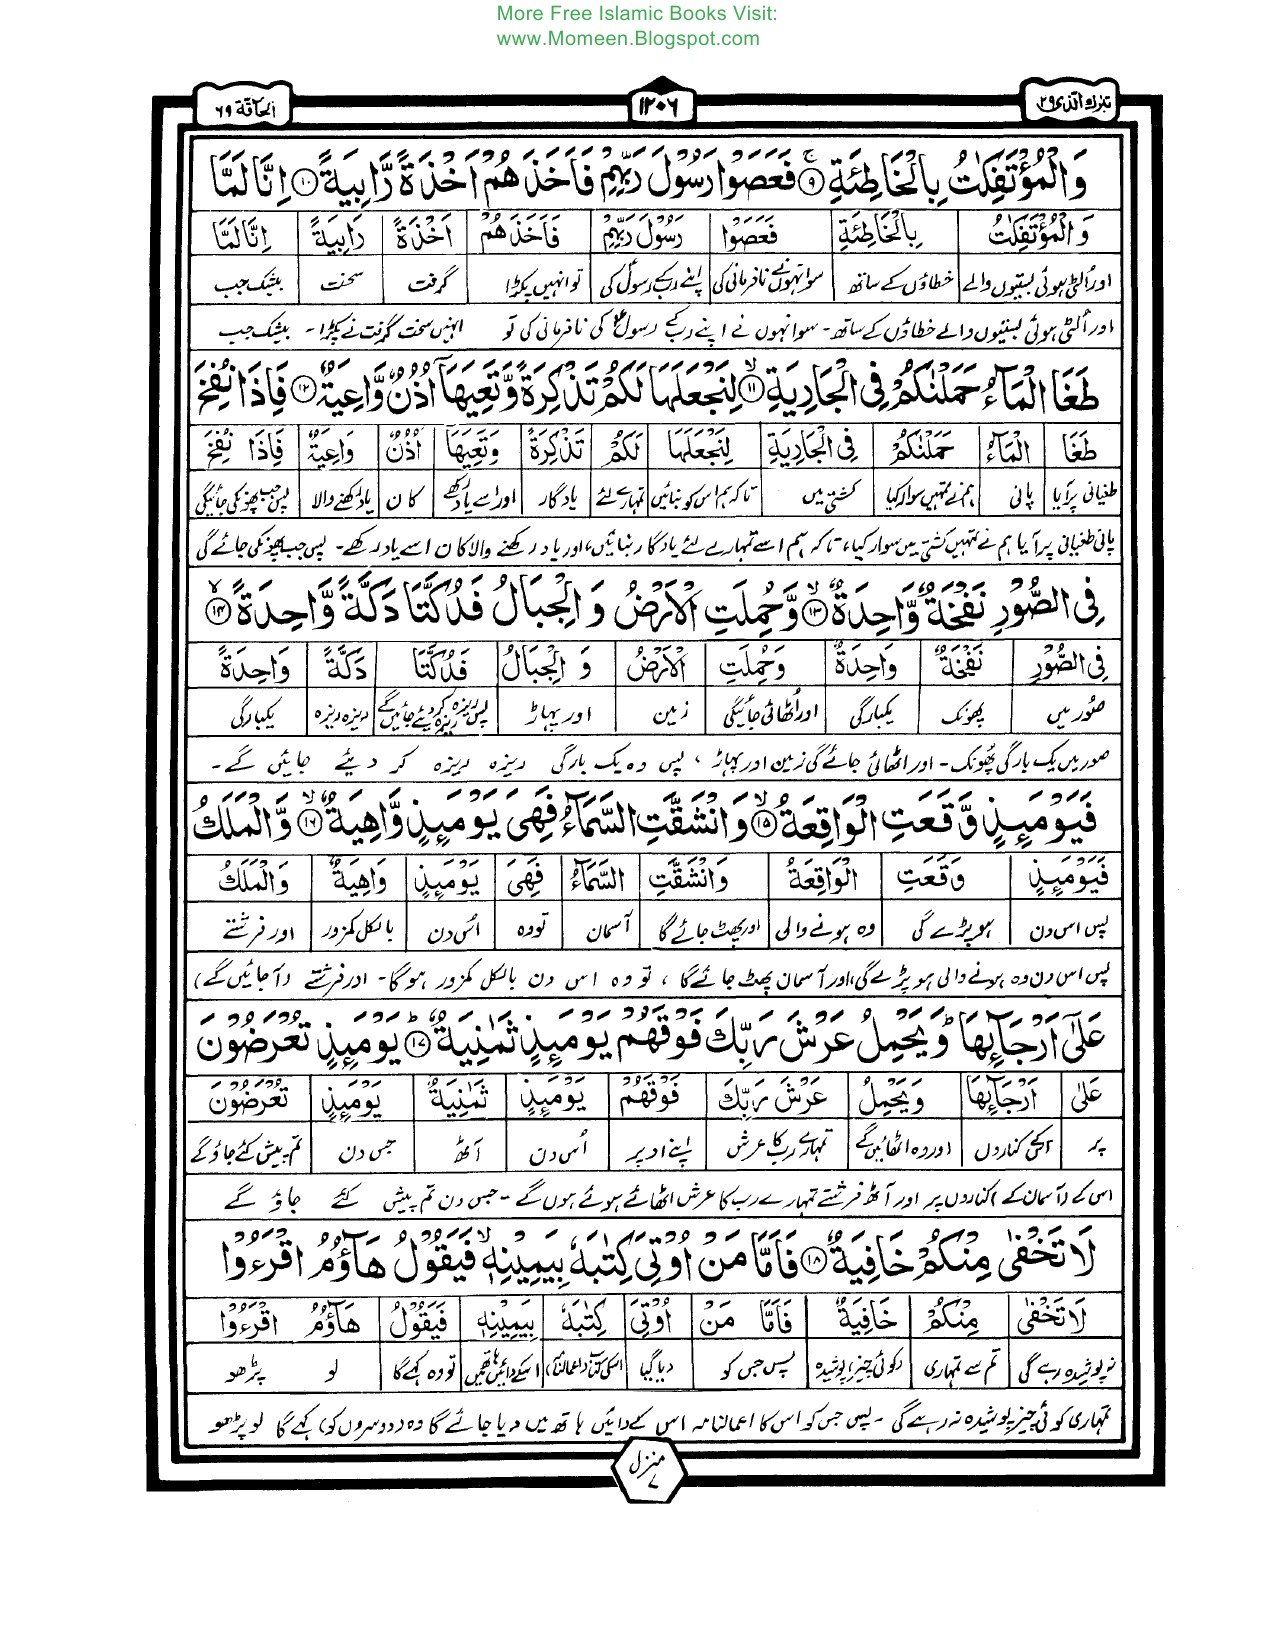 More Free Islamic Books Visit:
www.Momeen.Blogspot.com
تبٰرك الذى ۲۹
۱۲۰۶
الحآقة ۶۹
وَالْمُؤْتَفِكٰتُ بِالْخَاطِئَةِ ۹ فَعَصَوْا رَسُوْلَ رَبِّهِمْ فَاَخَذَهُمْ اَخْذَةً رَّابِيَةً ۱۰ اِنَّا لَمَّا
وَالْمُؤْتَفِكٰتُ بِالْخَاطِئَةِ فَعَصَوْا رَسُوْلَ رَبِّهِمْ فَاَخَذَهُمْ اَخْذَةً رَابِيَةً اِنَّا لَمَّا
اور الٹی ہوئی بستیوں والے خطاؤں کے ساتھ سو انہوں نے نافرمانی کی اپنے رب کے رسول کی تو انہیں پکڑا گرفت سخت بیشک جب
اور الٹی ہوئی بستیوں والے خطاؤں کے ساتھ۔ سو انہوں نے اپنے رب کے رسول کی نافرمانی کی تو انہیں سخت گرفت نے پکڑا۔ بیشک جب
طَغَا الْمَآءُ حَمَلْنٰكُمْ فِى الْجَارِيَةِ ۱۱ لِنَجْعَلَهَا لَكُمْ تَذْكِرَةً وَّتَعِيَهَآ اُذُنٌ وَّاعِيَةٌ ۱۲ فَاِذَا نُفِخَ
طَغَا الْمَآءُ حَمَلْنٰكُمْ فِى الْجَارِيَةِ لِنَجْعَلَهَا لَكُمْ تَذْكِرَةً وَتَعِيَهَا اُذُنٌ وَاعِيَةٌ فَاِذَا نُفِخَ
طغیانی پر آیا پانی ہم نے تمہیں سوار کیا کشتی میں تاکہ ہم اس کو بنائیں تمہارے لئے یادگار اور اسے یاد رکھے کان یاد رکھنے والا پس جب پھونکی جائیگی
پانی طغیانی پر آیا ہم نے تمہیں کشتی میں سوار کیا، تاکہ ہم اسے تمہارے لئے یادگار بنائیں، اور یاد رکھنے والا کان اسے یاد رکھے۔ پس جب پھونکی جائے گی
فِى الصُّوْرِ نَفْخَةٌ وَّاحِدَةٌ ۱۳ وَّحُمِلَتِ الْاَرْضُ وَ الْجِبَالُ فَدُكَّتَا دَكَّةً وَّاحِدَةً ۱۴
فِى الصُّوْرِ نَفْخَةٌ وَاحِدَةٌ وَحُمِلَتِ الْاَرْضُ وَ الْجِبَالُ فَدُكَّتَا دَكَّةً وَاحِدَةً
صور میں پھونک یکبارگی اور اٹھائی جائیگی زمین اور پہاڑ پس ریزہ ریزہ کر دیئے جائیں گے ریزہ ریزہ یکبارگی
صور میں یک بارگی پھونک۔ اور اٹھائی جائے گی زمین اور پہاڑ، پس وہ یک بارگی ریزہ ریزہ کر دیئے جائیں گے۔
فَيَوْمَئِذٍ وَّقَعَتِ الْوَاقِعَةُ ۱۵ وَانْشَقَّتِ السَّمَآءُ فَهِىَ يَوْمَئِذٍ وَّاهِيَةٌ ۱۶ وَّالْمَلَكُ
فَيَوْمَئِذٍ وَقَعَتِ الْوَاقِعَةُ وَانْشَقَّتِ السَّمَآءُ فَهِىَ يَوْمَئِذٍ وَاهِيَةٌ وَالْمَلَكُ
پس اس دن ہو پڑے گی وہ ہونے والی اور پھٹ جائے گا آسمان تو وہ اس دن بالکل کمزور اور فرشتے
پس اس دن وہ ہونے والی ہو پڑے گی، اور آسمان پھٹ جائے گا، تو وہ اس دن بالکل کمزور ہوگا۔ اور فرشتے (آ جائیں گے)
عَلٰٓى اَرْجَآئِهَا وَيَحْمِلُ عَرْشَ رَبِّكَ فَوْقَهُمْ يَوْمَئِذٍ ثَمٰنِيَةٌ ۱۷ يَوْمَئِذٍ تُعْرَضُوْنَ
عَلٰى اَرْجَآئِهَا وَيَحْمِلُ عَرْشَ رَبِّكَ فَوْقَهُمْ يَوْمَئِذٍ ثَمٰنِيَةٌ يَوْمَئِذٍ تُعْرَضُوْنَ
پر اسکے کناروں اور وہ اٹھائیں گے تمہارے رب کا عرش اپنے اوپر اس دن آٹھ جس دن تم پیش کئے جاؤ گے
اس کے (آسمان کے) کناروں پر اور آٹھ فرشتے تمہارے رب کا عرش اٹھائے ہوئے ہوں گے۔ جس دن تم پیش کئے جاؤ گے
لَا تَخْفٰى مِنْكُمْ خَافِيَةٌ ۱۸ فَاَمَّا مَنْ اُوْتِىَ كِتٰبَهٗ بِيَمِيْنِهٖ فَيَقُوْلُ هَآؤُمُ اقْرَءُوْا
لَا تَخْفٰى مِنْكُمْ خَافِيَةٌ فَاَمَّا مَنْ اُوْتِىَ كِتٰبَهٗ بِيَمِيْنِهٖ فَيَقُوْلُ هَآؤُمُ اقْرَءُوْا
نہ پوشیدہ رہے گی تم سے تمہاری (کوئی چیز) پوشیدہ پس جس کو دیا گیا اسکی کتاب (اعمالنامہ) اسکے دائیں ہاتھ میں تو وہ کہے گا لو پڑھو
تمہاری کوئی چیز پوشیدہ نہ رہے گی۔ پس جس کو اس کا اعمالنامہ اس کے دائیں ہاتھ میں دیا جائے گا وہ (دوسروں کو) کہے گا لو پڑھو
منزل ۷